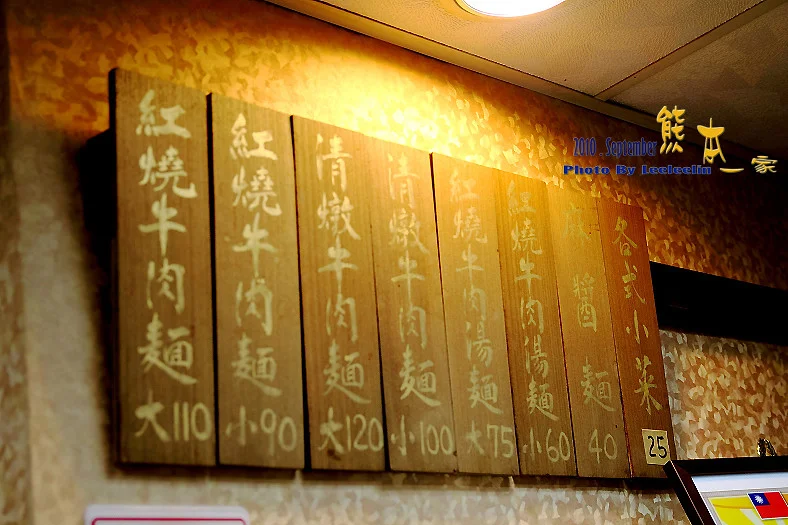 紅燒牛肉麵大110
紅燒牛肉麵小90
清燉牛肉麵大120
清燉牛肉麵小100
紅燒牛肉湯麵大75
紅燒牛肉湯麵小60
麻醬麵40
各式小菜25
2010 . September
Photo By Leeleelin
熊本一家